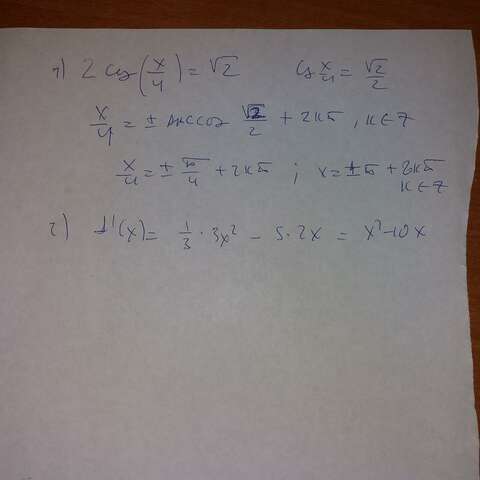 1) 2 cos(x/4) = √2    cos x/4 = √2/2
x/4 = ± arccos √2/2 + 2kπ, k ∈ Z
x/4 = ± π/4 + 2kπ ; x = ± π + 8kπ
k ∈ Z
2) f'(x) = 1/3 · 3x² − 5 · 2x = x² − 10x